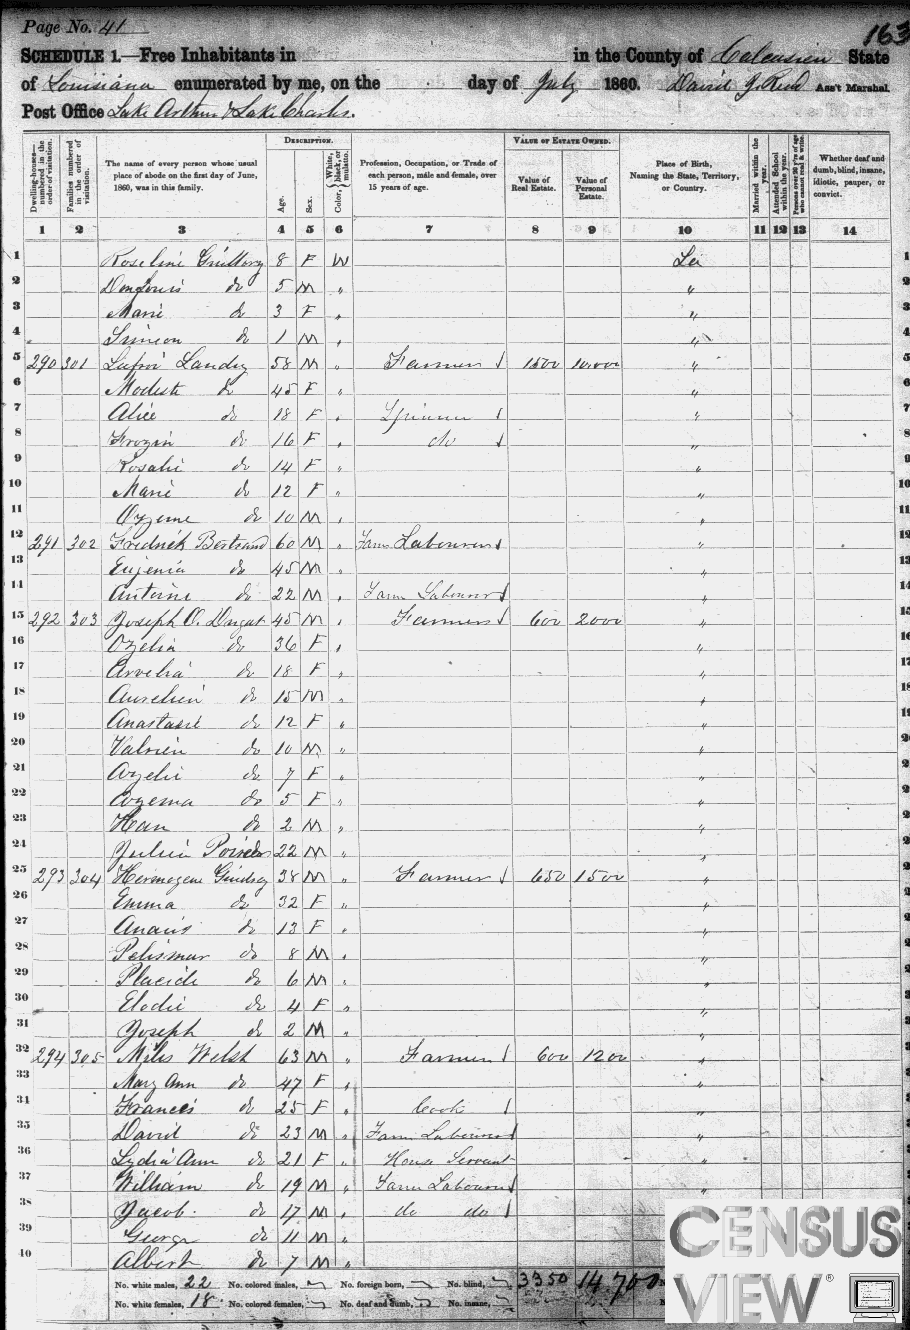 Page No. 41
163
SCHEDULE 1.—Free Inhabitants in in the County of Calcasieu State
of Louisiana enumerated by me, on the day of July 1860. David J. Reid Ass't Marshal.
Post Office Lake Arthur & Lake Charles.
Dwelling-houses—numbered in the order of visitation.
Families numbered in the order of visitation.
The name of every person whose usual place of abode on the first day of June, 1860, was in this family.
DESCRIPTION.
Age.
Sex.
Color, White, black, or mulatto.
Profession, Occupation, or Trade of each person, male and female, over 15 years of age.
VALUE OF ESTATE OWNED.
Value of Real Estate.
Value of Personal Estate.
Place of Birth, Naming the State, Territory, or Country.
Married within the year.
Attended School within the year.
Persons over 20 y'rs of age who cannot read & write.
Whether deaf and dumb, blind, insane, idiotic, pauper, or convict.
1 2 3 4 5 6 7 8 9 10 11 12 13 14
1 Roseline Guillory 8 F W La
2 do 5 M " "
3 Marie do 3 F " "
4 Simeon do 1 M " "
5 290 301 Landry 58 M " Farmer 1500 10,000 "
6 Modeste do 45 F " "
7 Alice do 18 F " Spinner "
8 do 16 F " do "
9 Rosalie do 14 F " "
10 Marie do 12 F " "
11 Ozeme do 10 M " "
12 291 302 Fredrick Bertrand 60 M " Farm Labourer "
13 Eugenia do 45 M " "
14 Antoine do 22 M " Farm Labourer "
15 292 303 Joseph O. Dugat 45 M " Farmer 600 2000 "
16 Ozelia do 36 F " "
17 Arvelia do 18 F " "
18 Aurelien do 15 M " "
19 Anastasie do 12 F " "
20 Valsien do 10 M " "
21 Azelie do 7 F " "
22 Ozema do 5 F " "
23 do 2 M " "
24 Julien 22 M " "
25 293 304 Hermogene 38 M " Farmer 650 1500 "
26 Emma do 32 F " "
27 Anais do 13 F " "
28 Pelismar do 8 M " "
29 Placide do 6 M " "
30 Elodie do 4 F " "
31 Joseph do 2 M " "
32 294 305 Miles Welsh 63 M " Farmer 600 1200 "
33 Mary Ann do 47 F " "
34 Frances do 25 F " Cook "
35 David do 23 M " Farm Labourer "
36 Lydia Ann do 21 F " House Servant "
37 William do 19 M " Farm Labourer "
38 Jacob do 17 M " do do
39 George do 11 M "
40 Albert do 7 M "
No. white males, 22 No. colored males, No. foreign born, No. blind, 3350 14700
No. white females, 18 No. colored females, No. deaf and dumb, No. insane,
CENSUS
VIEW®